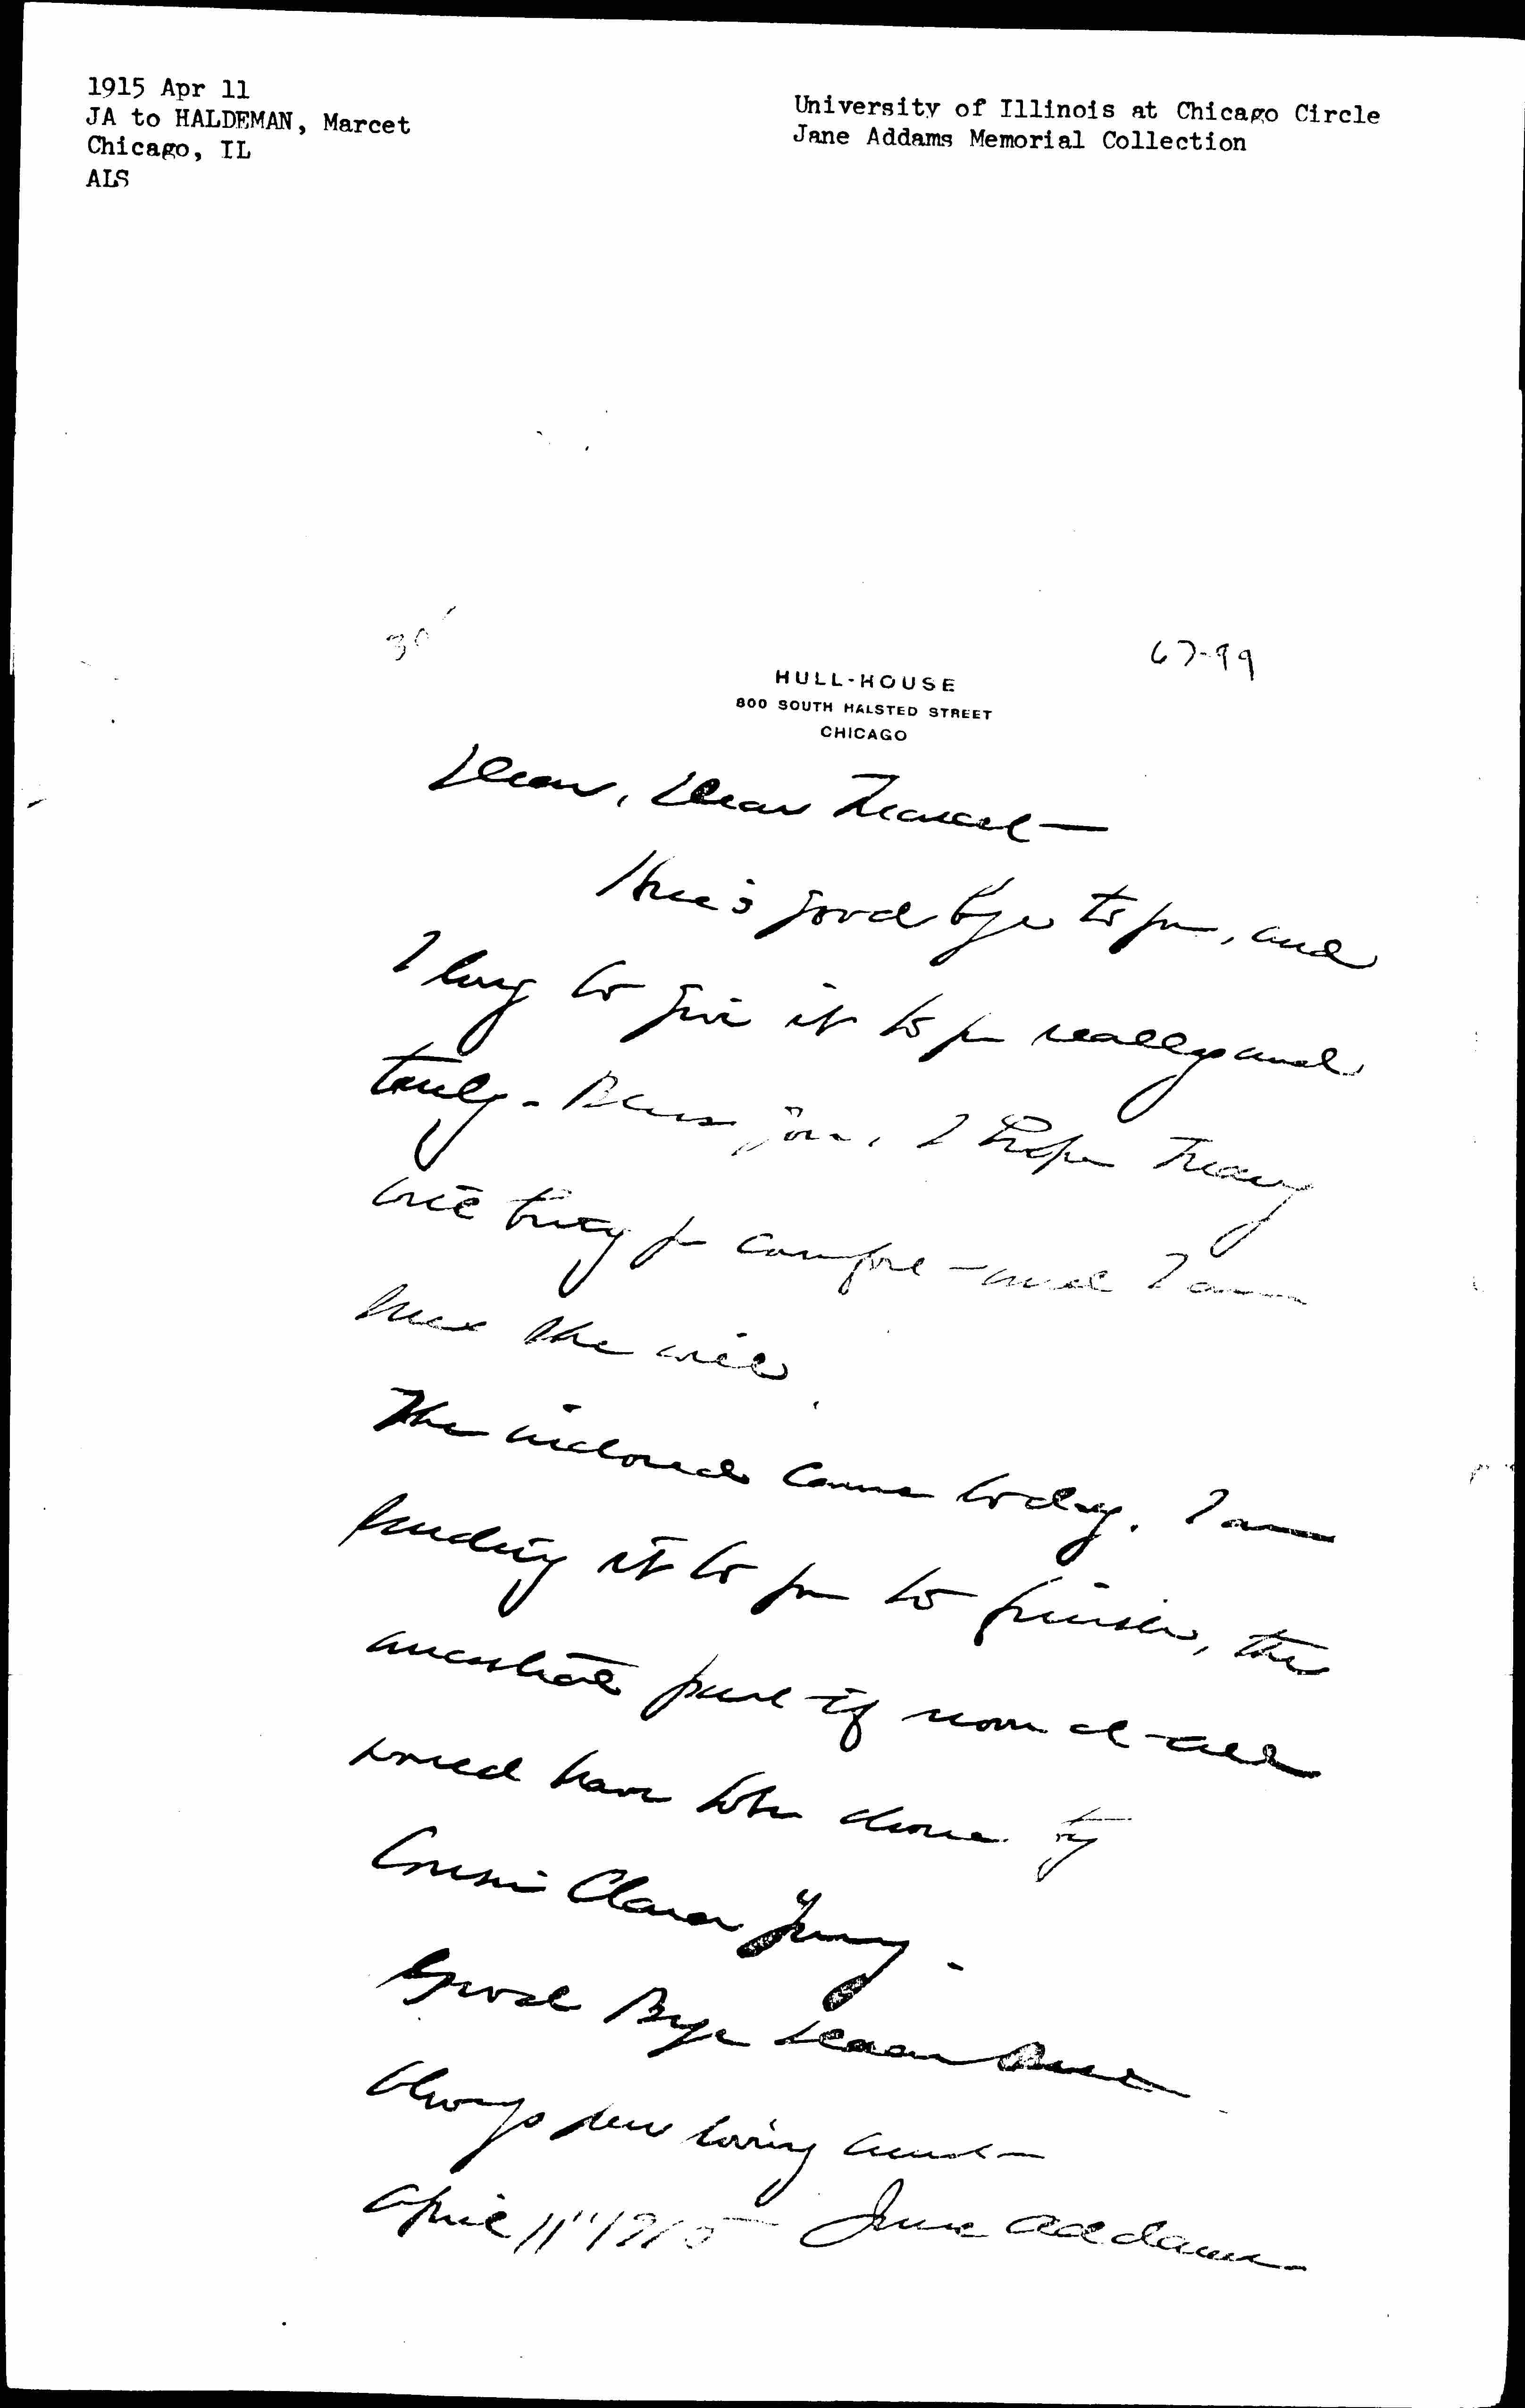 1915 Apr 11
JA to HALDEMAN, Marcet
Chicago, IL
ALS
University of Illinois at Chicago Circle
Jane Addams Memorial Collection
67-99
HULL-HOUSE
800 SOUTH HALSTED STREET
CHICAGO
Dear, Dear Marcet —
Here's good bye to you, and
I long to give it to you really and
truly - Bless you, I hope Mary
will bring you comfort - and I am
sure she will.
The inclosed came today. I am
sending it to you to finish, the
ancestral part if now at all
would have to be done by
Cousin Clara Young.
Good Bye dear
Always your loving aunt —
April 11" 1915 — Jane Addams